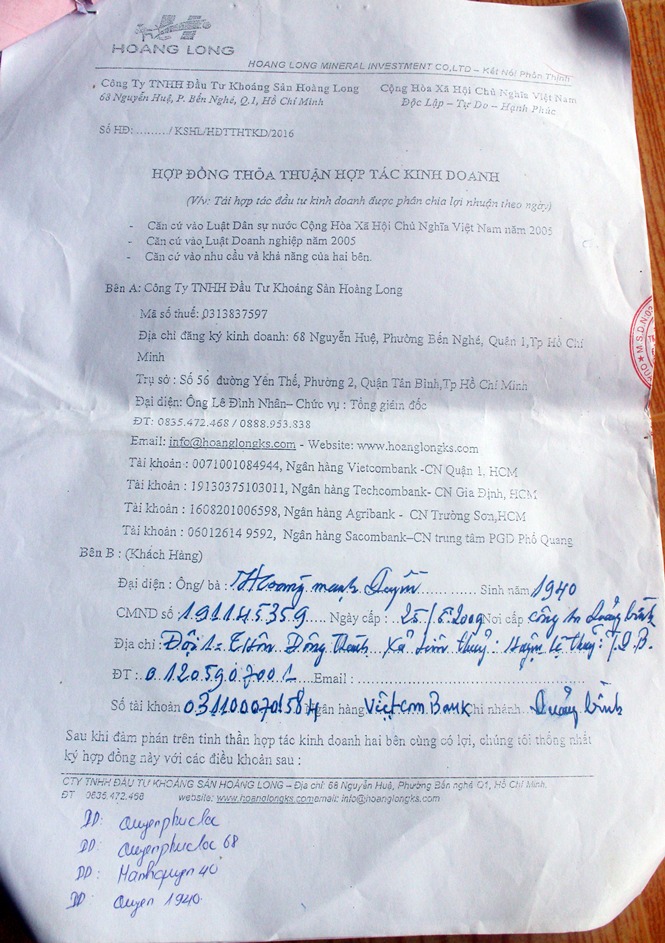 HOANG LONG
HOANG LONG MINERAL INVESTMENT CO,LTD – Kết Nối Phồn Thịnh
Công Ty TNHH Đầu Tư Khoáng Sản Hoàng Long Cộng Hòa Xã Hội Chủ Nghĩa Việt Nam
68 Nguyễn Huệ, P. Bến Nghé, Q.1, Hồ Chí Minh Độc Lập – Tự Do – Hạnh Phúc
Số HĐ: ........./ KSHL/HĐTTHTKD/2016
HỢP ĐỒNG THỎA THUẬN HỢP TÁC KINH DOANH
(V/v: Tái hợp tác đầu tư kinh doanh được phân chia lợi nhuận theo ngày)
- Căn cứ vào Luật Dân sự nước Cộng Hòa Xã Hội Chủ Nghĩa Việt Nam năm 2005
- Căn cứ vào Luật Doanh nghiệp năm 2005
- Căn cứ vào nhu cầu và khả năng của hai bên.
Bên A: Công Ty TNHH Đầu Tư Khoáng Sản Hoàng Long
Mã số thuế: 0313837597
Địa chỉ đăng ký kinh doanh: 68 Nguyễn Huệ, Phường Bến Nghé, Quận 1,Tp Hồ Chí
Minh
Trụ sở : Số 56 đường Yên Thế, Phường 2, Quận Tân Bình,Tp Hồ Chí Minh
Đại diện: Ông Lê Đình Nhân– Chức vụ : Tổng giám đốc
ĐT: 0835.472.468 / 0888.953.838
Email: info@hoanglongks.com - Website: www.hoanglongks.com
Tài khoản : 0071001084944, Ngân hàng Vietcombank -CN Quận 1, HCM
Tài khoản : 19130375103011, Ngân hàng Techcombank- CN Gia Định, HCM
Tài khoản : 1608201006598, Ngân hàng Agribank - CN Trường Sơn,HCM
Tài khoản : 06012614 9592, Ngân hàng Sacombank–CN trung tâm PGD Phố Quang
Bên B : (Khách Hàng)
Đại diện : Ông/ bà : Hoàng mạnh Quyền Sinh năm 1940
CMND số : 191145359 Ngày cấp : 25/5.2009 Nơi cấp công an Quảng bình
Địa chỉ : Đội 1 - Thôn Đông Thành Xã Liên thuỷ: Huyện Lệ Thuỷ: T.Q.B.
ĐT : 01205907001 Email :
Số tài khoản 0311000701584 Ngân hàng Việtcom Bank Chi nhánh Quảng bình
Sau khi đàm phán trên tinh thần hợp tác kinh doanh hai bên cùng có lợi, chúng tôi thống nhất
ký hợp đồng này với các điều khoản sau :
CTY TNHH ĐẦU TƯ KHOÁNG SẢN HOÀNG LONG – Địa chỉ: 68 Nguyễn Huệ, Phường Bến nghé Q1, Hồ Chí Minh,
ĐT 0835.472.468 website: www.hoanglongks.com email: info@hoanglongks.com
DD: Quyenphucloc
DD: Quyenphucloc 68
DD: Manhquyen 40
DD: Quyen 1940